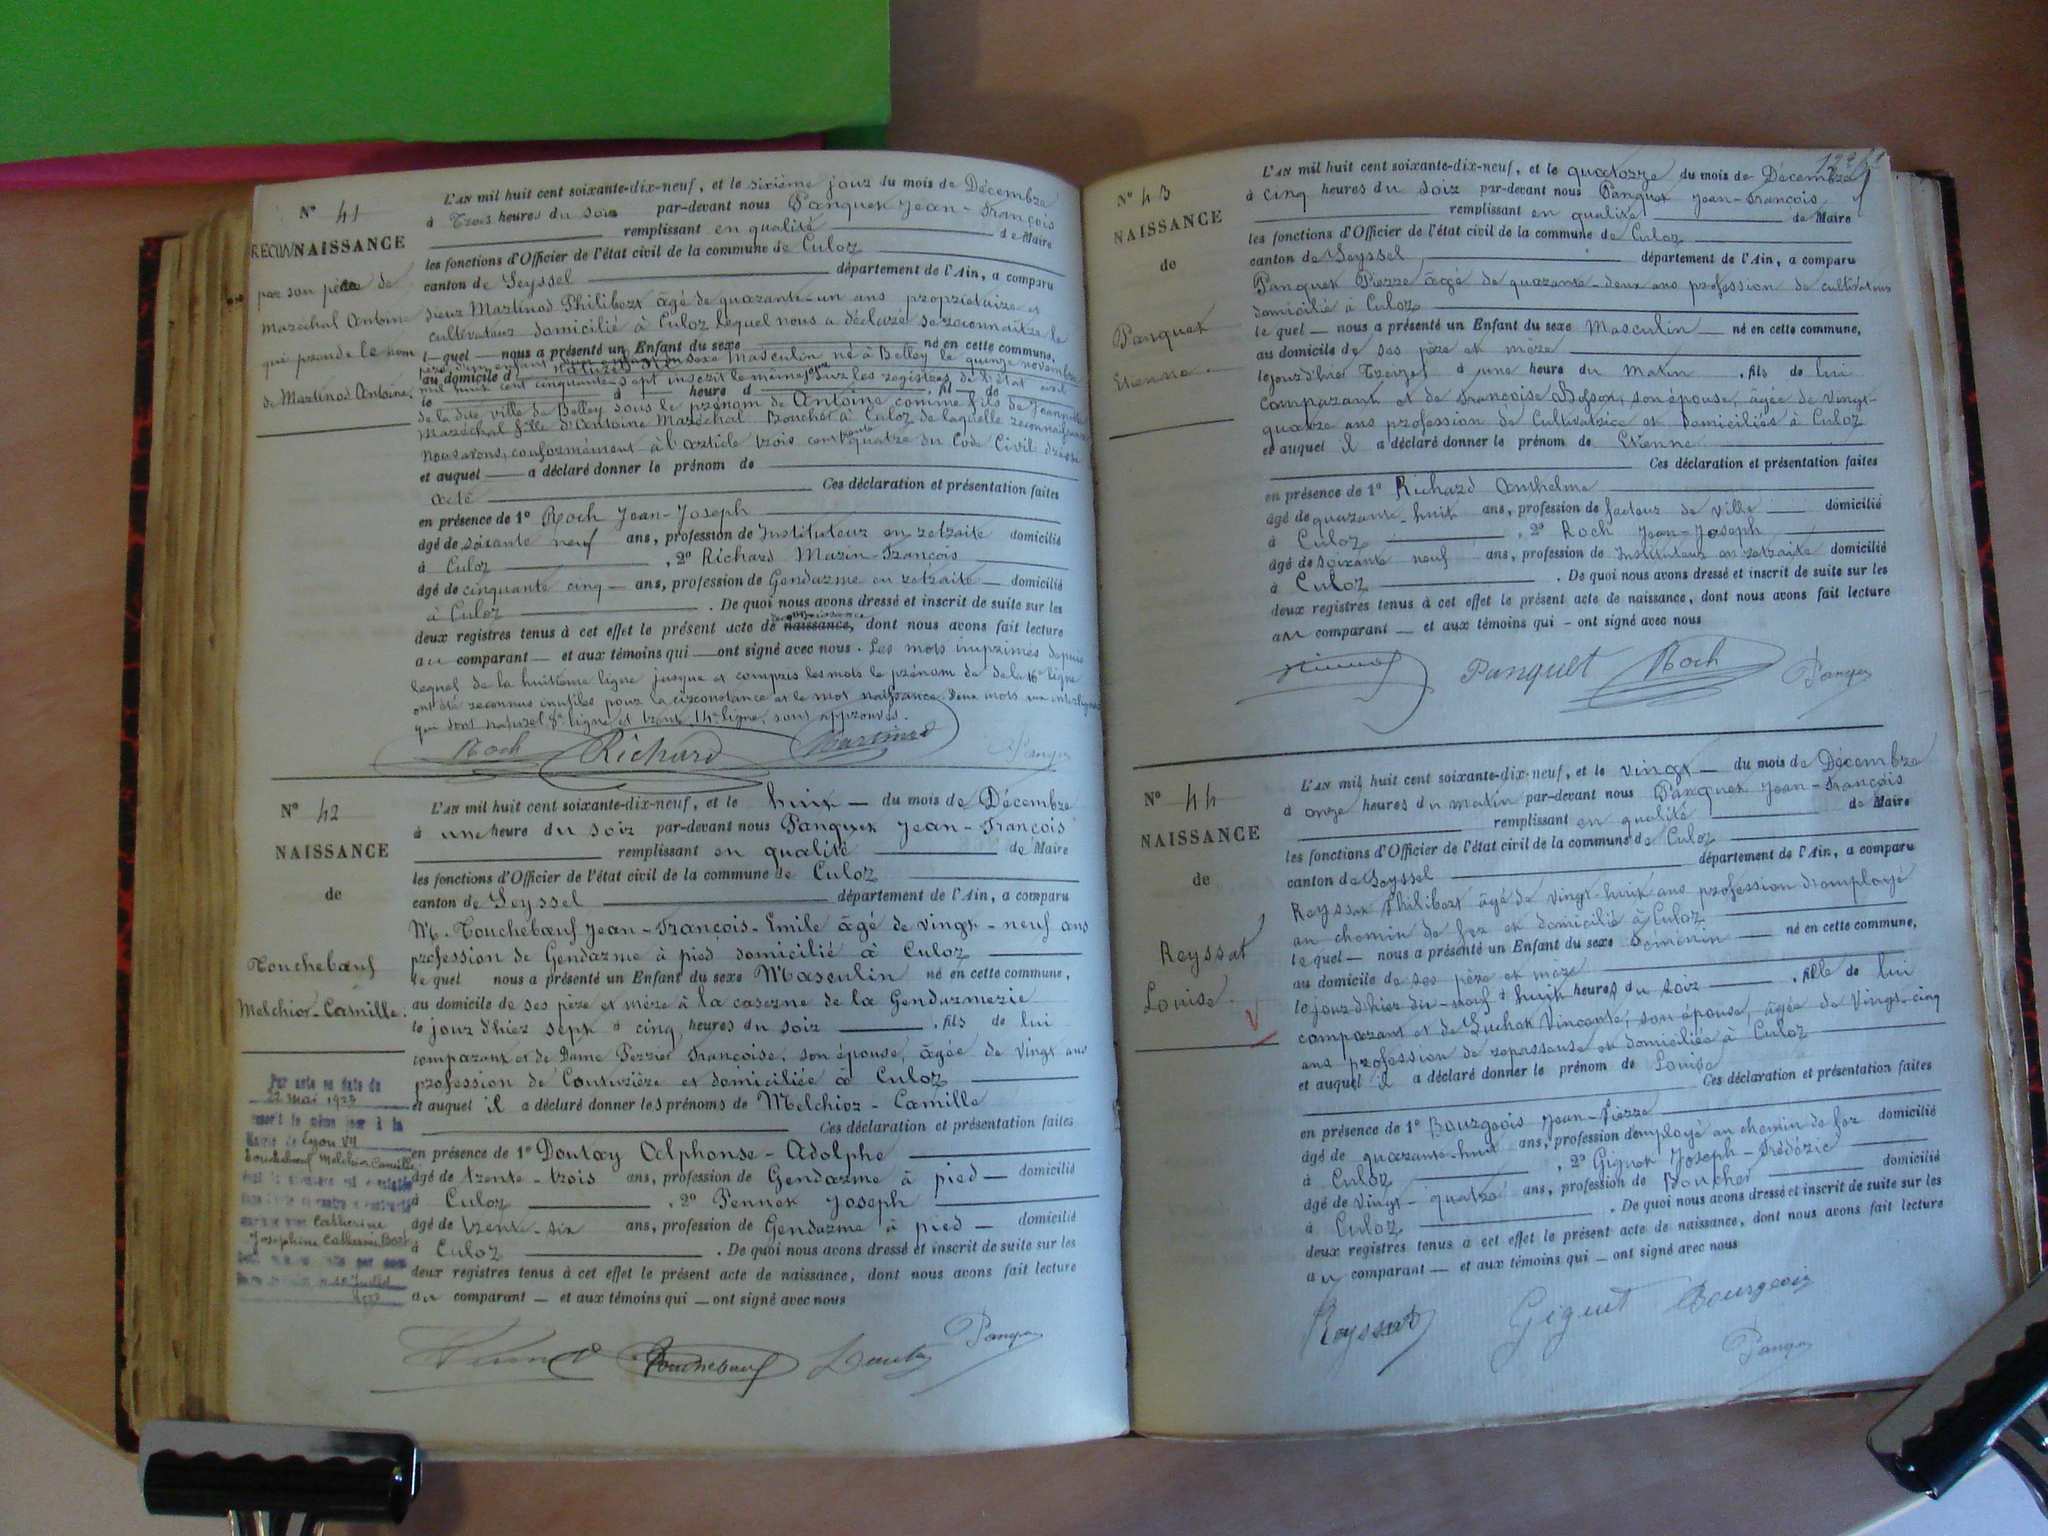 N° 41
RECONNAISSANCE
par son père de
Maréchal Antoine
qui prend le nom
de Martinod Antoine.
L'AN mil huit cent soixante-dix-neuf, et le sixième jour du mois de Décembre
à Trois heures du soir par-devant nous Panquet Jean-François
remplissant en qualité de Maire
les fonctions d'Officier de l'état civil de la commune de Culoz
canton de Seyssel département de l'Ain, a comparu
sieur Martinod Philibert âgé de quarante-un ans propriétaire et
cultivateur domicilié à Culoz lequel nous a déclaré se reconnaître le
l-quel nous a présenté un Enfant du sexe né en cette commune,
père d'un enfant du sexe Masculin né à Belley le quinze novembre
au domicile d
mil huit cent cinquante-sept inscrit le même jour sur les registres de l'état civil
le à heure d , fil de
de la dite ville de Belley sous le prénom de Antoine comme fils de Jeannette
Maréchal fille d'Antoine Maréchal Boucher à Culoz de laquelle reconnaissance
nous avons, conformément à l'article trois cent trente quatre du Code Civil dressé
et auquel a déclaré donner le prénom de
acte Ces déclaration et présentation faites
en présence de 1° Roch Jean-Joseph
âgé de soixante neuf ans, profession de Instituteur en retraite domicilié
à Culoz , 2° Richard Marin-François
âgé de cinquante cinq ans, profession de Gendarme en retraite domicilié
à Culoz . De quoi nous avons dressé et inscrit de suite sur les
deux registres tenus à cet effet le présent acte de naissance, reconnaissance dont nous avons fait lecture
au comparant et aux témoins qui ont signé avec nous. Les mots imprimés depuis
lequel de la huitième ligne jusque et compris les mots le prénom de de la 16e ligne
ont été reconnus inutiles pour la circonstance et le mot naissance. Deux mots en interligne
qui sont naturel 8e ligne et trente 14e ligne, sont approuvés.
Roch Richard Martinod Panquet
N° 42
NAISSANCE
de
Touchebœuf
Melchior-Camille.
Par acte en date du
22 mai 1923
inscrit le même jour à la
Mairie de Lyon VII
Touchebœuf Melchior Camille
Catherine
Josephine Catherine
L'AN mil huit cent soixante-dix-neuf, et le huit du mois de Décembre
à une heure du soir par-devant nous Panquet Jean-François
remplissant en qualité de Maire
les fonctions d'Officier de l'état civil de la commune de Culoz
canton de Seyssel département de l'Ain, a comparu
M. Touchebœuf Jean-François-Emile âgé de vingt-neuf ans
profession de Gendarme à pied domicilié à Culoz
le quel nous a présenté un Enfant du sexe Masculin né en cette commune,
au domicile de ses père et mère à la caserne de la Gendarmerie
le jour d'hier sept à cinq heures du soir , fils de lui
comparant et de Dame Perrier Françoise, son épouse, âgée de vingt ans
profession de Couturière et domiciliée à Culoz
et auquel il a déclaré donner les prénoms de Melchior-Camille
Ces déclaration et présentation faites
en présence de 1° Doutay Alphonse-Adolphe
âgé de trente-trois ans, profession de Gendarme à pied domicilié
à Culoz , 2° Pennet Joseph
âgé de trente-six ans, profession de Gendarme à pied domicilié
à Culoz . De quoi nous avons dressé et inscrit de suite sur les
deux registres tenus à cet effet le présent acte de naissance, dont nous avons fait lecture
au comparant et aux témoins qui ont signé avec nous
Touchebœuf Panquet
N° 43
NAISSANCE
de
Panquet
Etienne.
L'AN mil huit cent soixante-dix-neuf, et le quatorze du mois de Décembre
à cinq heures du soir par-devant nous Panquet Jean-François
remplissant en qualité de Maire
les fonctions d'Officier de l'état civil de la commune de Culoz
canton de Seyssel département de l'Ain, a comparu
Panquet Pierre âgé de quarante-deux ans profession de cultivateur
domicilié à Culoz
le quel nous a présenté un Enfant du sexe Masculin né en cette commune,
au domicile de ses père et mère
le jour d'hier Treize à une heure du matin , fils de lui
comparant et de Françoise son épouse, âgée de vingt-
quatre ans profession de Cultivatrice et domiciliés à Culoz
et auquel il a déclaré donner le prénom de Etienne
Ces déclaration et présentation faites
en présence de 1° Richard Anthelme
âgé de quarante-huit ans, profession de facteur de ville domicilié
à Culoz , 2° Roch Jean-Joseph
âgé de soixante neuf ans, profession de Instituteur en retraite domicilié
à Culoz . De quoi nous avons dressé et inscrit de suite sur les
deux registres tenus à cet effet le présent acte de naissance, dont nous avons fait lecture
au comparant et aux témoins qui ont signé avec nous
Panquet Roch Panquet
N° 44
NAISSANCE
de
Reyssat
Louise.
L'AN mil huit cent soixante-dix-neuf, et le vingt du mois de Décembre
à onze heures du matin par-devant nous Panquet Jean-François
remplissant en qualité de Maire
les fonctions d'Officier de l'état civil de la commune de Culoz
canton de Seyssel département de l'Ain, a comparu
Reyssat Philibert âgé de vingt-huit ans profession d'employé
au chemin de fer et domicilié à Culoz
le quel nous a présenté un Enfant du sexe Féminin né en cette commune,
au domicile de ses père et mère
le jour d'hier dix-neuf à huit heures du soir , fille de lui
comparant et de Luchat Vincente, son épouse, âgée de vingt-cinq
ans profession de repasseuse et domiciliée à Culoz
et auquel il a déclaré donner le prénom de Louise
Ces déclaration et présentation faites
en présence de 1° Bourgeois Jean-Pierre
âgé de quarante-huit ans, profession d'employé au chemin de fer domicilié
à Culoz , 2° Giguet Joseph-Frédéric
âgé de vingt-quatre ans, profession de Boucher domicilié
à Culoz . De quoi nous avons dressé et inscrit de suite sur les
deux registres tenus à cet effet le présent acte de naissance, dont nous avons fait lecture
au comparant et aux témoins qui ont signé avec nous
Reyssat Giguet Bourgeois
Panquet